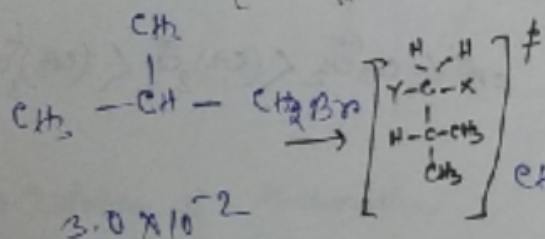 CH3
|
CH3 — CH — CH2Br → [ H H ]‡
Y–C–X
|
H–C–CH3
|
CH3
3.0 × 10^-2